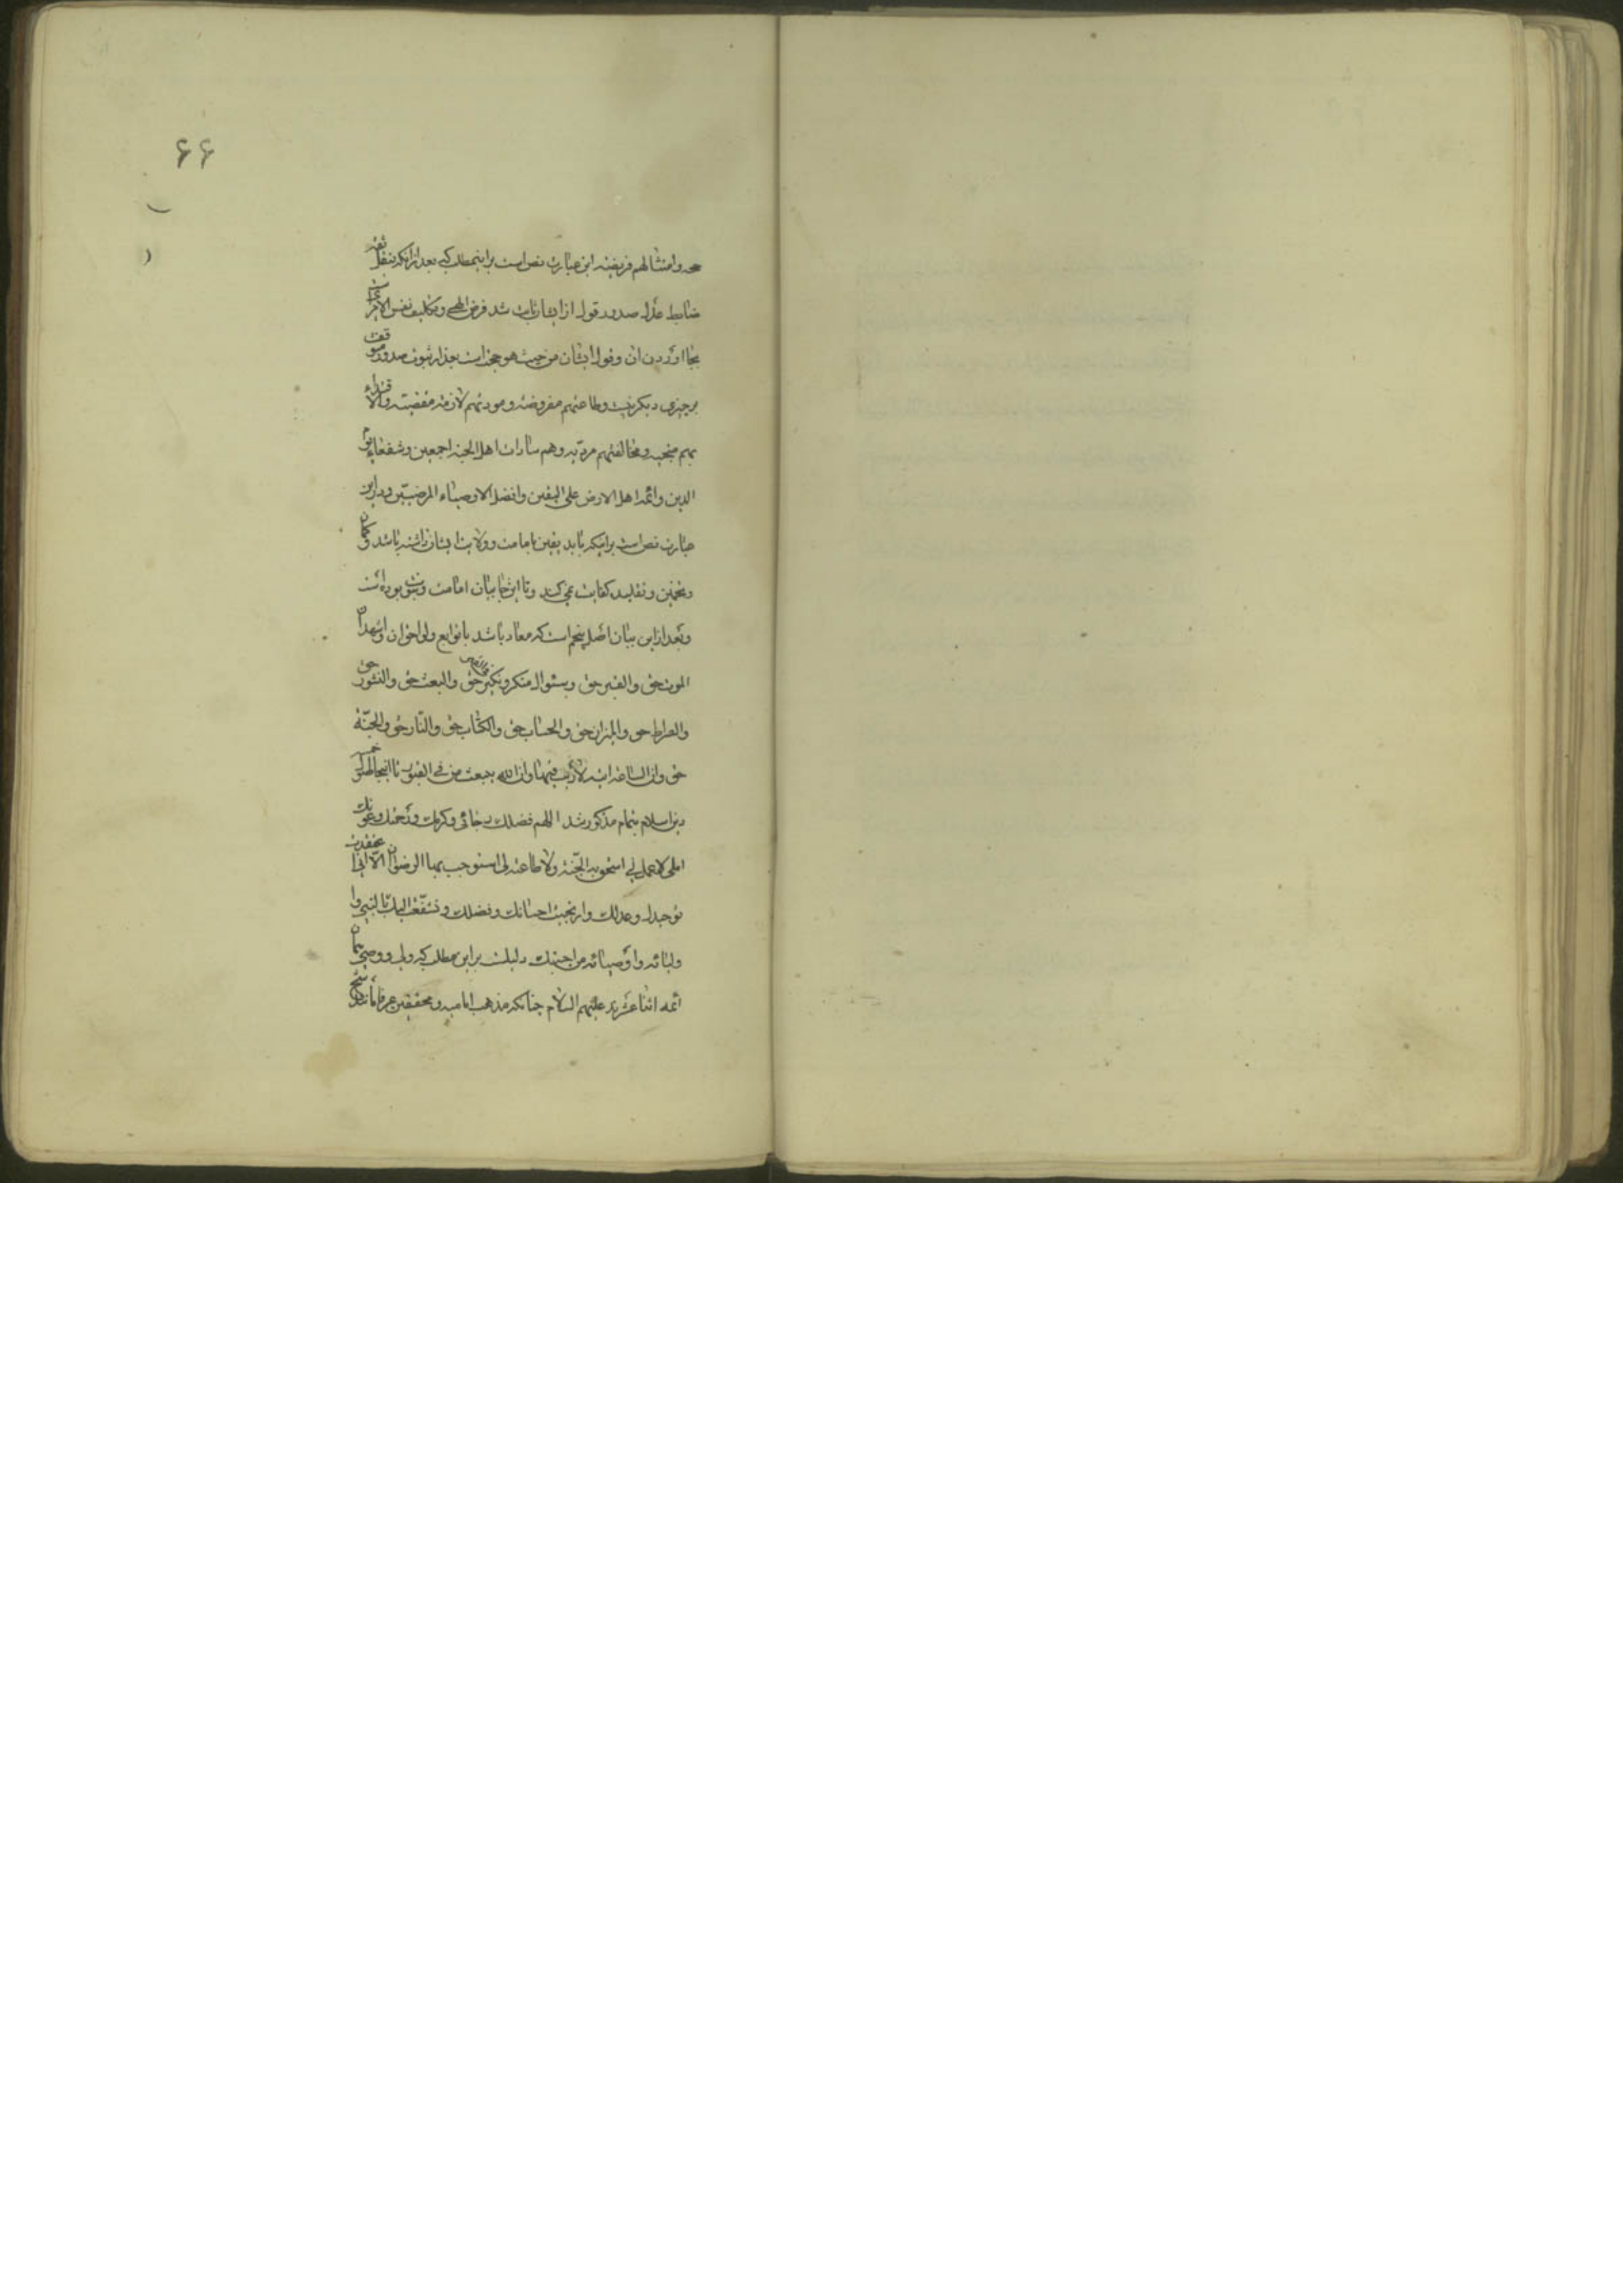 ۶۶
حجه وامتثالهم فریضه این عبارت نص است بر اینمطلب که بعد از آنکه بنقل ثقه
ضابط عدل صدور قول از ایشان ثابت شد فرض الهی وتکلیف نفس الامر
بجا آوردن آن وقول ایشان من حیث هو حجت است بعد از ثبوت صدور موقف
بر چیزی دیگر نیست وطاعتهم مفروضه ومودتهم لازمة مقضیته والاقتداء
بهم منجیه ومخالفتهم مردیه وهم سادات اهل الجنه اجمعین وشفعاء یوم
الدین وائمه اهل الارض علی الیقین وافضل الاوصیاء المرضیین ودر این
عبارت نص است بر اینکه باید یقین بامامت وولایت ایشان داشته باشد وگمان
وتخمین وتقلید کفایت نمی کند وتا این جا بیان امامت ونبوت بوده است
وبعد از این بیان اصل پنجم است که معاد باشد با توابع ولواحق آن واشهد ان
الموت حق والقبر حق وسئوال منکر ونکیر فی القبر حق والبعث حق والنشور حق
والصراط حق والمیزان حق والحساب حق والکتاب حق والنار حق والجنّة
حق وان الساعه اتیه لاریب فیها وان الله یبعث من فی القبور تا اینجا اصول خمسه
دین اسلام بتمام مذکور شد اللهم فضلک رجائی وکرمک ورحمتک وعونک
املی لا عمل لی استحق به الجنّة ولا طاعه لی استوجب بها الرضوان الا انی اعتقدت
توحیدک وعدلک وارتجیت احسانک وفضلک وتشفّعت الیک بالنبی وا
ولیائه واوصیائه من احبتک دلیلست بر این مطلب که ولی ووصی همان
ائمه اثنا عشرند علیهم السلام چنانکه مذهب امامیه ومحققین عرفا مانند شیخ